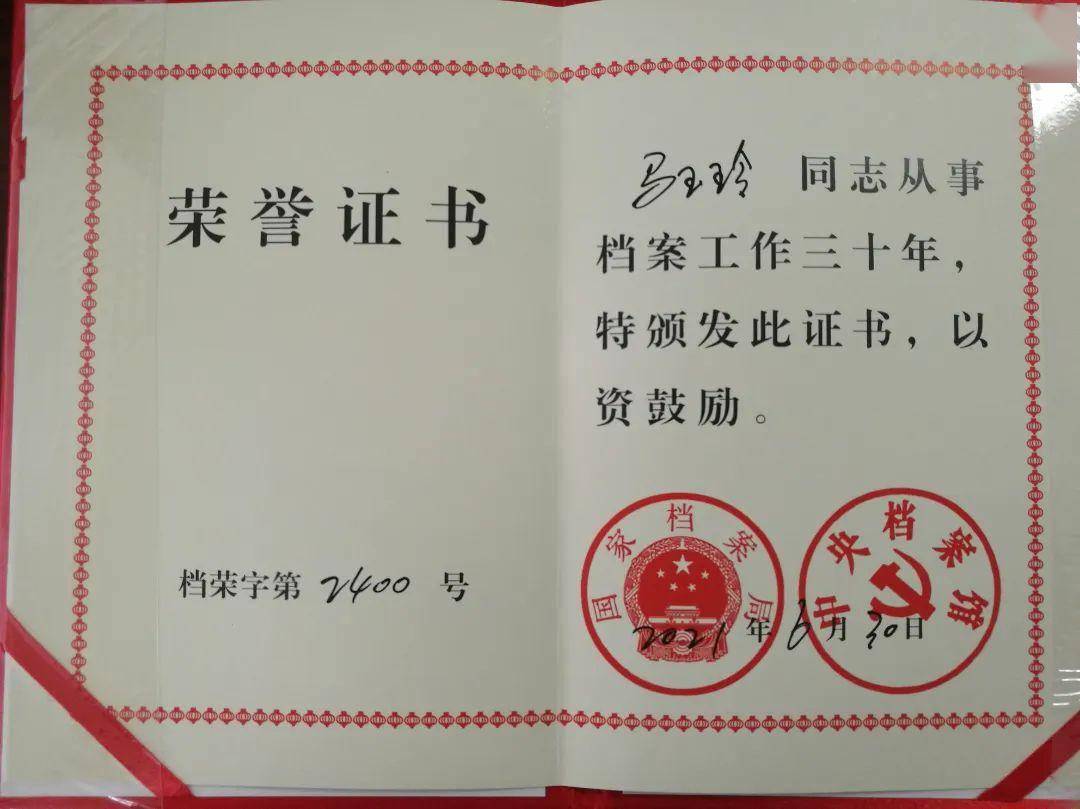 荣誉证书
档荣字第 2400 号
马玉玲 同志从事
档案工作三十年，
特颁发此证书，以
资鼓励。
国家档案局
中央档案馆
2021年6月30日